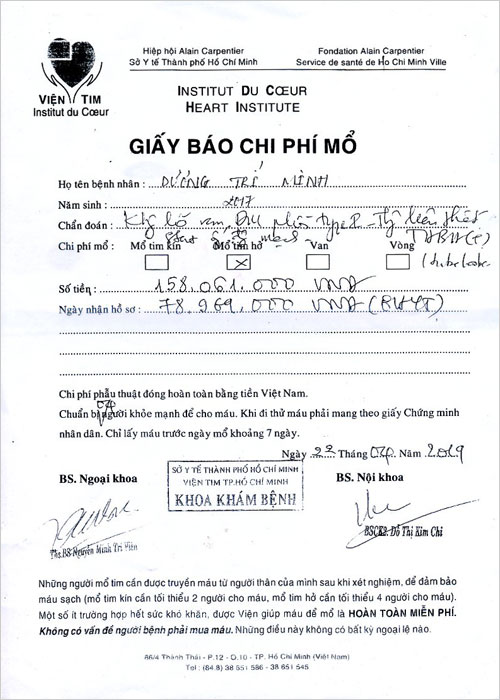 VIỆN TIM
Institut du Cœur
Hiệp hội Alain Carpentier
Sở Y tế Thành phố Hồ Chí Minh
Fondation Alain Carpentier
Service de santé de Ho Chi Minh Ville
INSTITUT DU CŒUR
HEART INSTITUTE
GIẤY BÁO CHI PHÍ MỔ
Họ tên bệnh nhân : DƯƠNG TRÍ MINH
Năm sinh : 2017
Chẩn đoán : type 2
Chi phí mổ : Mổ tim kín Mổ tim hở Van Vòng
Số tiền : 158.061.000 VNĐ
Ngày nhận hồ sơ : 78.969.000 VNĐ (BHYT)
Chi phí phẫu thuật đóng hoàn toàn bằng tiền Việt Nam.
Chuẩn bị người khỏe mạnh để cho máu. Khi đi thử máu phải mang theo giấy Chứng minh
nhân dân. Chỉ lấy máu trước ngày mổ khoảng 7 ngày.
Ngày 22 Tháng Năm 2019
BS. Ngoại khoa
SỞ Y TẾ THÀNH PHỐ HỒ CHÍ MINH
VIỆN TIM TP.HỒ CHÍ MINH
KHOA KHÁM BỆNH
BS. Nội khoa
Ths.BS Nguyễn Minh Trí Viên
BSCK2. Đỗ Thị Kim Chi
Những người mổ tim cần được truyền máu từ người thân của mình sau khi xét nghiệm, để đảm bảo
máu sạch (mổ tim kín cần tối thiểu 2 người cho máu, mổ tim hở cần tối thiểu 4 người cho máu).
Một số ít trường hợp hết sức khó khăn, được Viện giúp máu để mổ là HOÀN TOÀN MIỄN PHÍ.
Không có vấn đề người bệnh phải mua máu. Những điều này không có bất kỳ ngoại lệ nào.
86/4 Thành Thái - P.12 - Q.10 - TP. Hồ Chí Minh (Việt Nam)
Tel : (84 8) 38 651 586 - 38 651 545